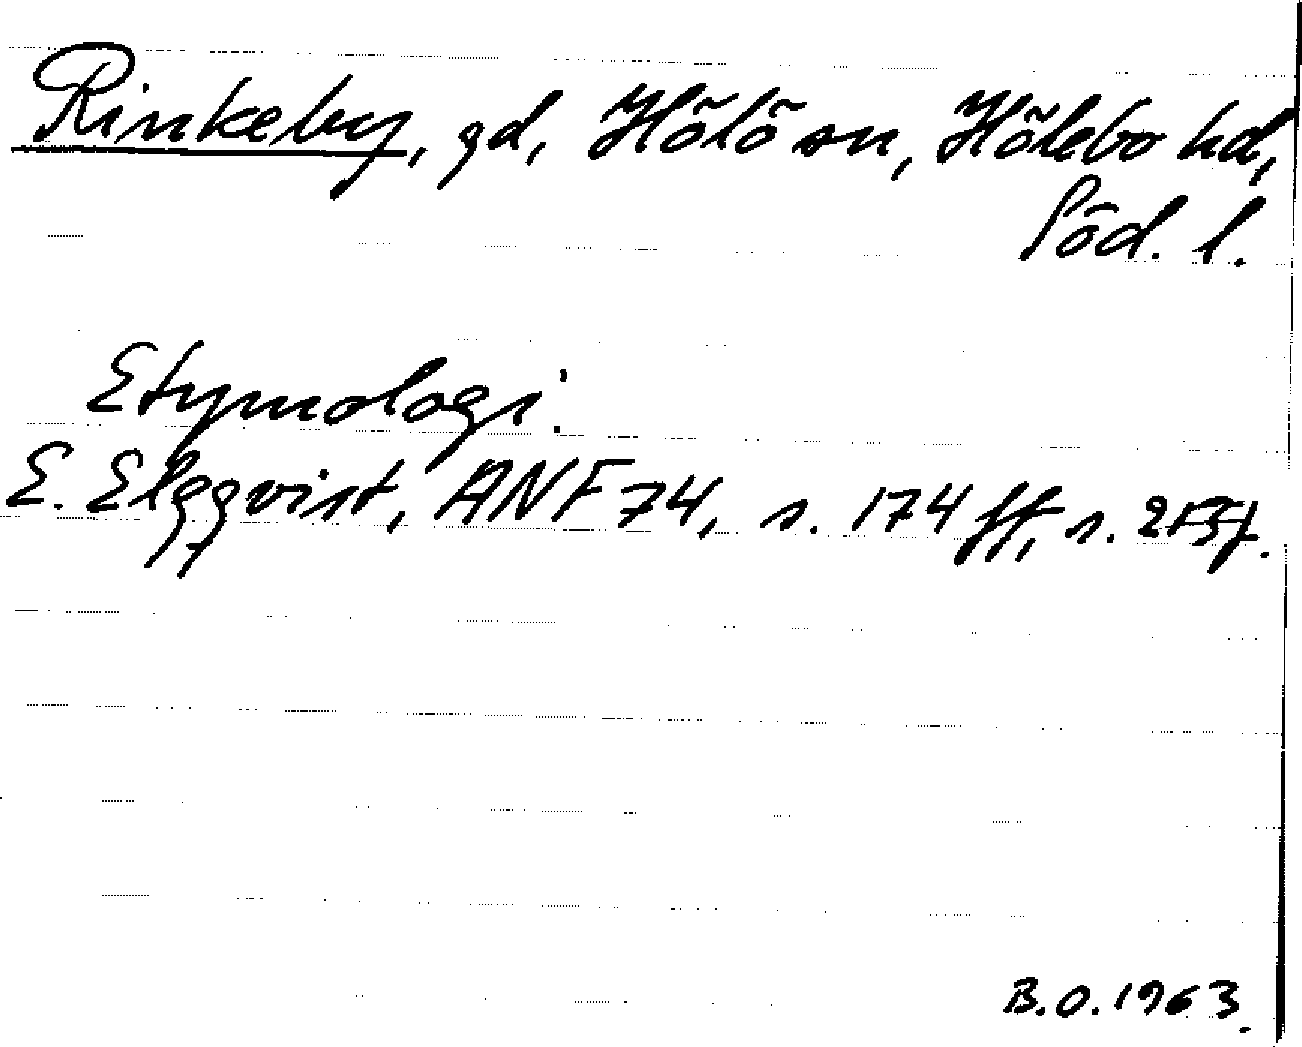 Rinkeby, gd, Hölö sn, Hölebo hd,
Söd. l.
Etymologi.
E. Elgqvist, ANF 74, s. 174 ff, s.
B.O. 1963.